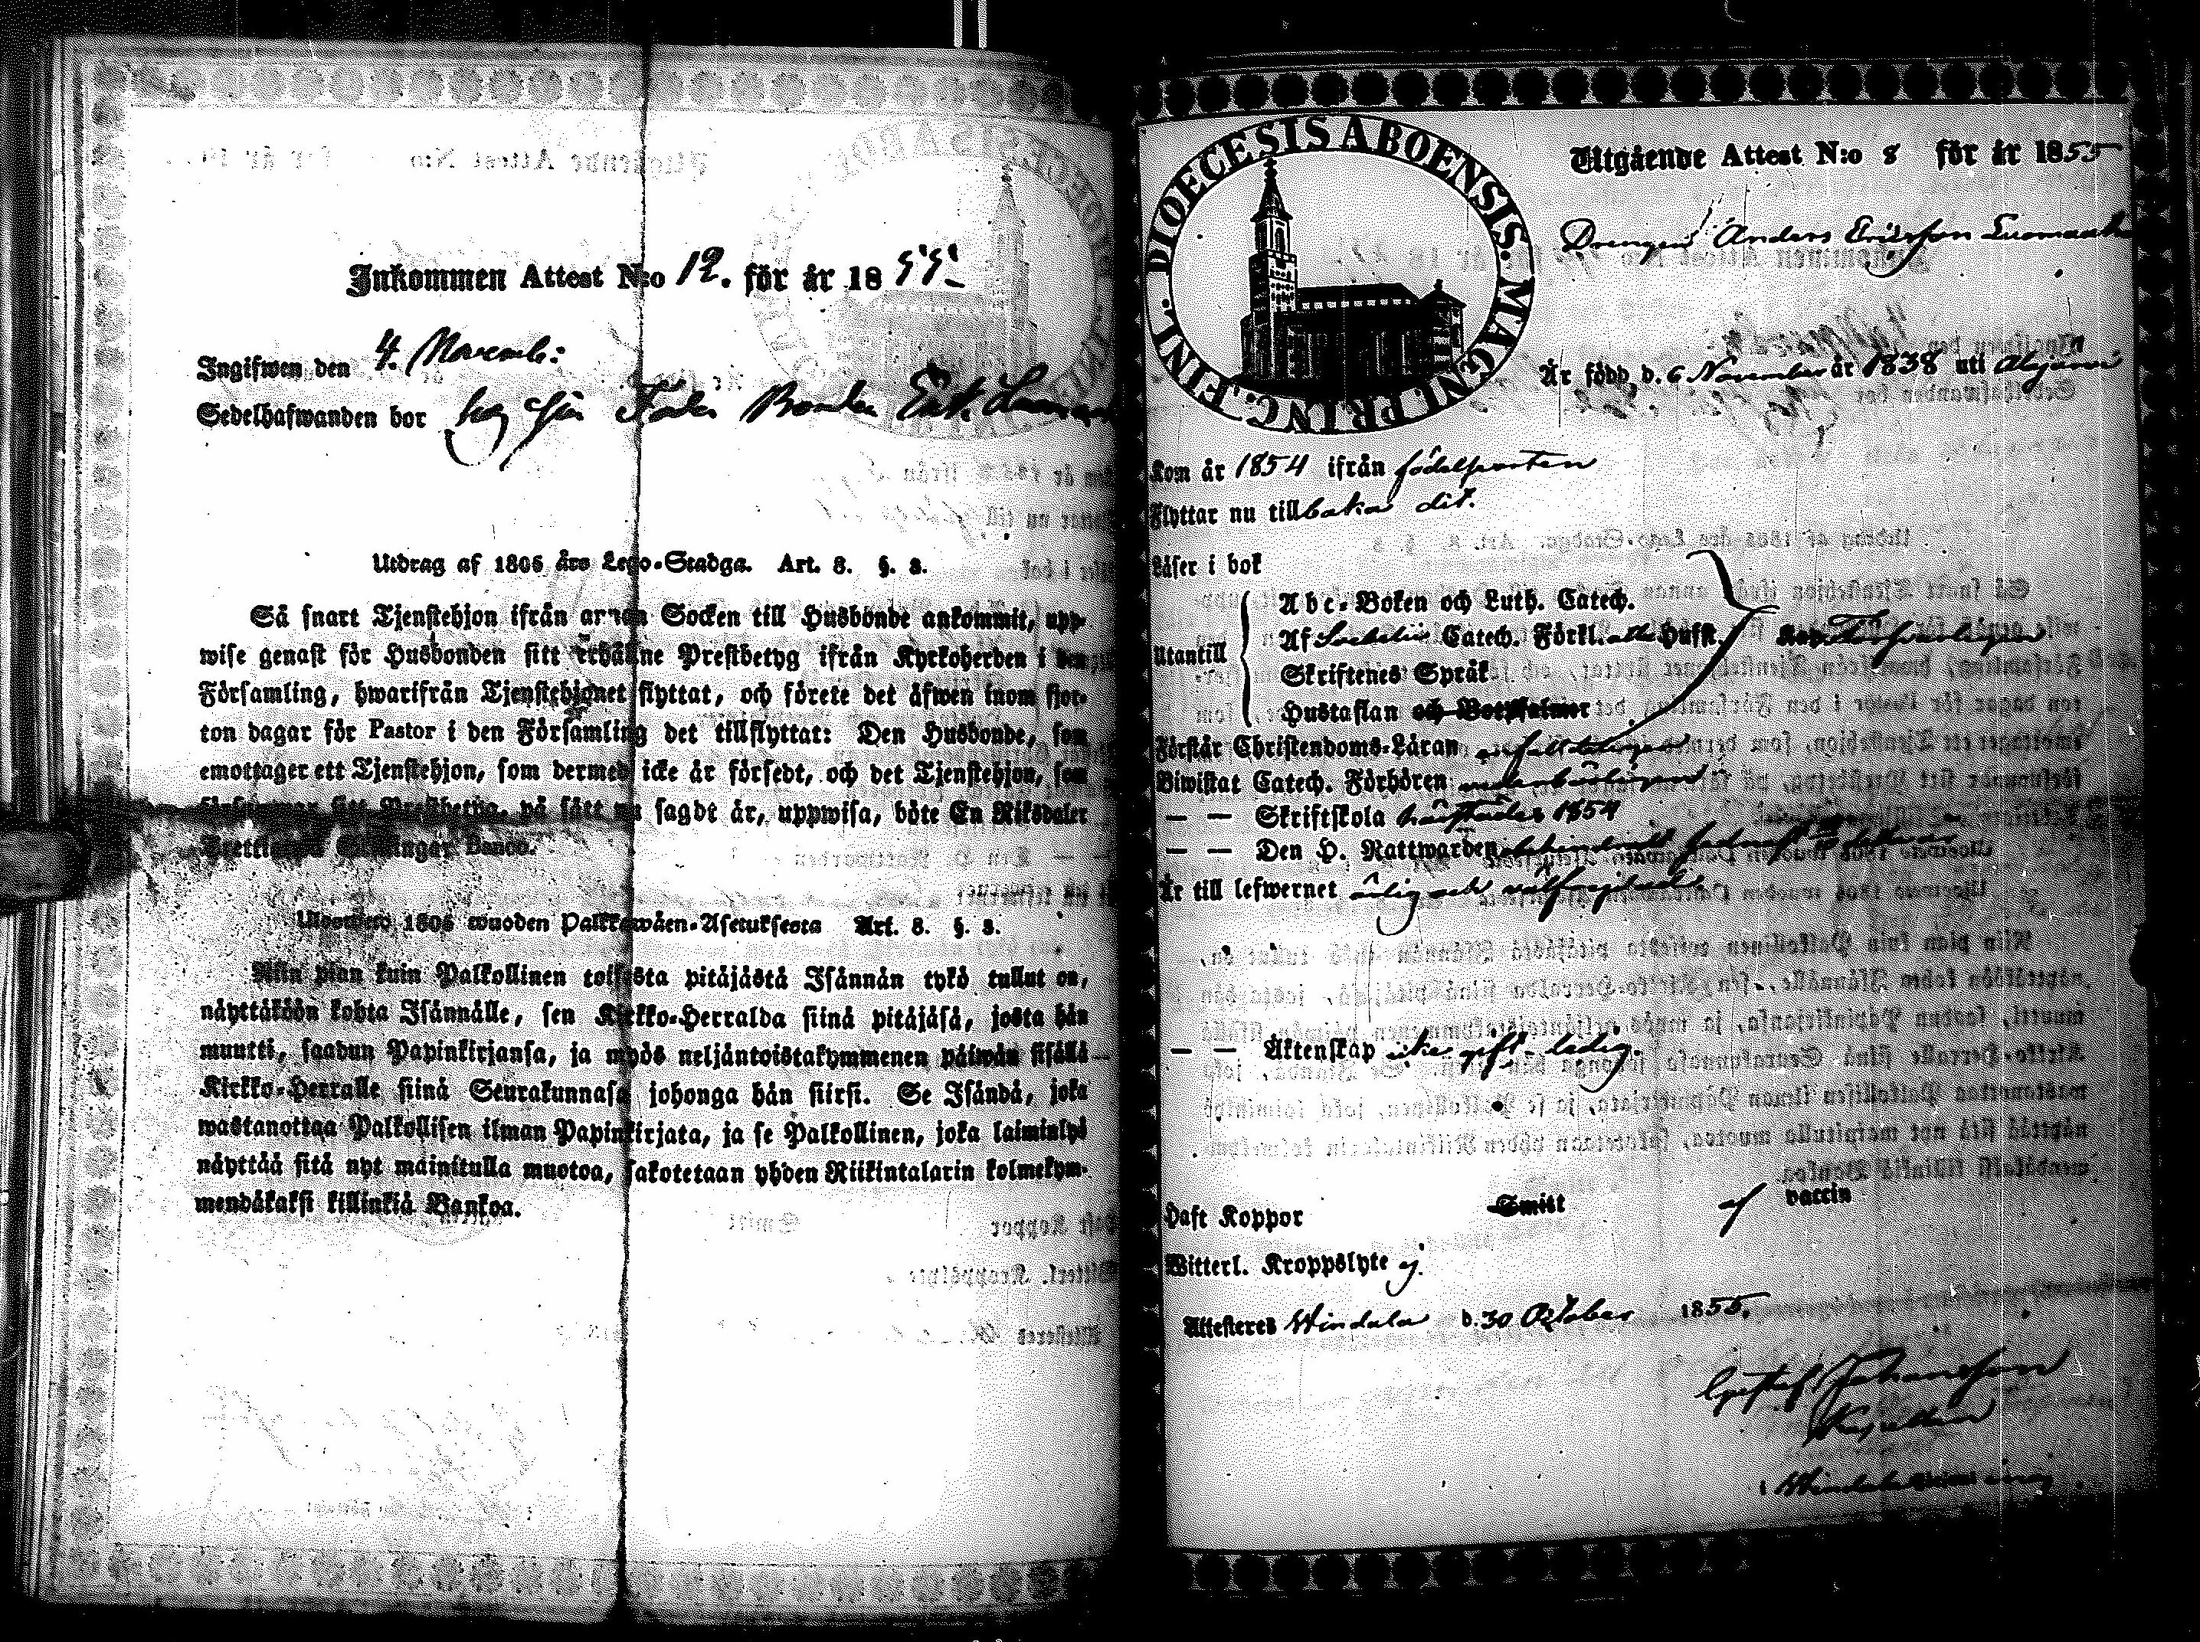 Inkommen Attest N:o 12. för år 1855
Ingifwen den 4. Novemb:
Sedelhafwanden bor hos sin Fader Bonden Erik
Utdrag af 1805 års Lego-Stadga. Art. 8. §. 3.
Så snart Tjenstehjon ifrån annan Socken till Husbonde ankommit, upp-
wise genast för Husbonden sitt erhållne Prestbetyg ifrån Kyrkoherden i den
Församling, hwarifrån Tjenstehjonet flyttat, och förete det äfwen inom fjor-
ton dagar för Pastor i den Församling det tillflyttat: Den Husbonde, som
emottager ett Tjenstehjon, som dermed icke är försedt, och det Tjenstehjon, som
försummar sitt Prestbetyg, på sätt nu sagdt är, uppwisa, böte En Riksdaler
Trettiotwå Skillingar Banco.
Ulosweto 1805 wuoden Palkkawäen-Asetuksesta Art. 8. §. 3.
Niin pian kuin Palkollinen toisesta pitäjästä Isännän tykö tullut on,
näyttäköön kohta Isännälle, sen Kirkko-Herralda siinä pitäjäsä, josta hän
muutti, saadun Papinkirjansa, ja myös neljäntoistakymmenen päiwän sisällä
Kirkko-Herralle siinä Seurakunnasa johonga hän siirsi. Se Isändä, joka
wastanottaa Palkollisen ilman Papinkirjata, ja se Palkollinen, joka laiminlyö
näyttää sitä nyt mainitulla muotoa, sakotetaan yhden Riikintalarin kolmekym-
mendäkaksi killinkiä Bankoa.
DIOECESIS ABOENSIS. MAGNI. PRINC. FINL.
Utgående Attest N:o 8 för år 1855
Drengen Anders Ericsson
Är född d. 6 November år 1838 uti Alajärvi
Kom år 1854 ifrån födelseorten
Flyttar nu till baka dit.
Läser i bok
Abc-Boken och Luth. Catech.
Utantill Af Svebelii Catech. Förkl. alla Hufst. försvarligen
Skriftenes Språk
Hustaflan och Botpsalmer
Förstår Christendoms-Läran enfaldeligen
Biwistat Catech. Förhören
— — Skriftskola härstädes 1854
— — Den H. Nattwarden
Är till lefwernet ärlig och välfrejdad.
— — Äktenskap icke gift - ledig.
Haft Koppor Smitt af vaccin
Witterl. Kroppslyte ej.
Attesteres Windala d. 30 October 1855.
Gustaf Johansson
Kapellan
i Windala